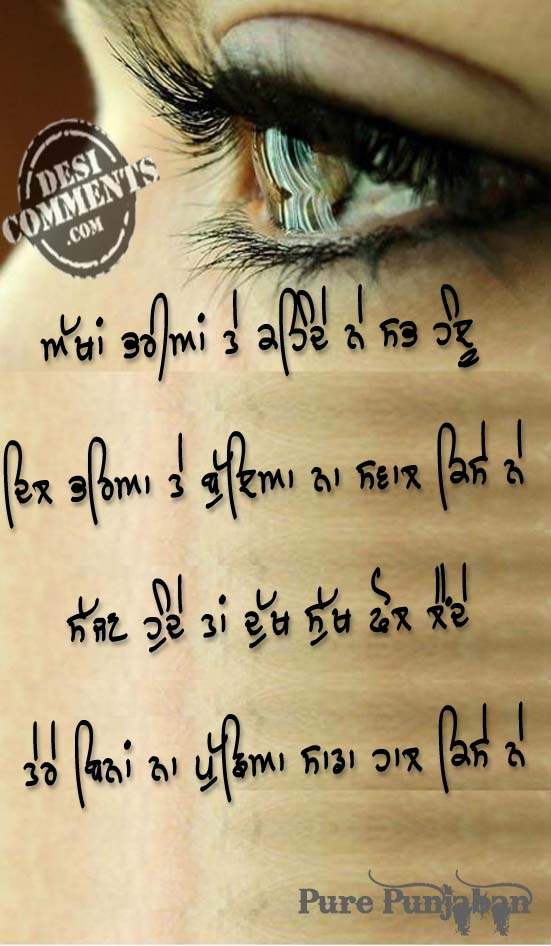 DESI
COMMENTS
.COM
ਅੱਖਾਂ ਭਰੀਆਂ ਤੇ ਕਹਿੰਦੇ ਨੇ ਸਭ ਹੰਝੂ
ਦਿਲ ਭਰਿਆ ਤੇ ਬੁੱਝਿਆ ਨਾ ਸਵਾਲ ਕਿਸੇ ਨੇ
ਸੱਜਣ ਹੁੰਦੇ ਤਾਂ ਦੁੱਖ ਸੁੱਖ ਫੋਲ ਲੈਂਦੇ
ਤੇਰੇ ਬਿਨਾਂ ਨਾ ਪੁੱਛਿਆ ਸਾਡਾ ਹਾਲ ਕਿਸੇ ਨੇ
Pure Punjaban